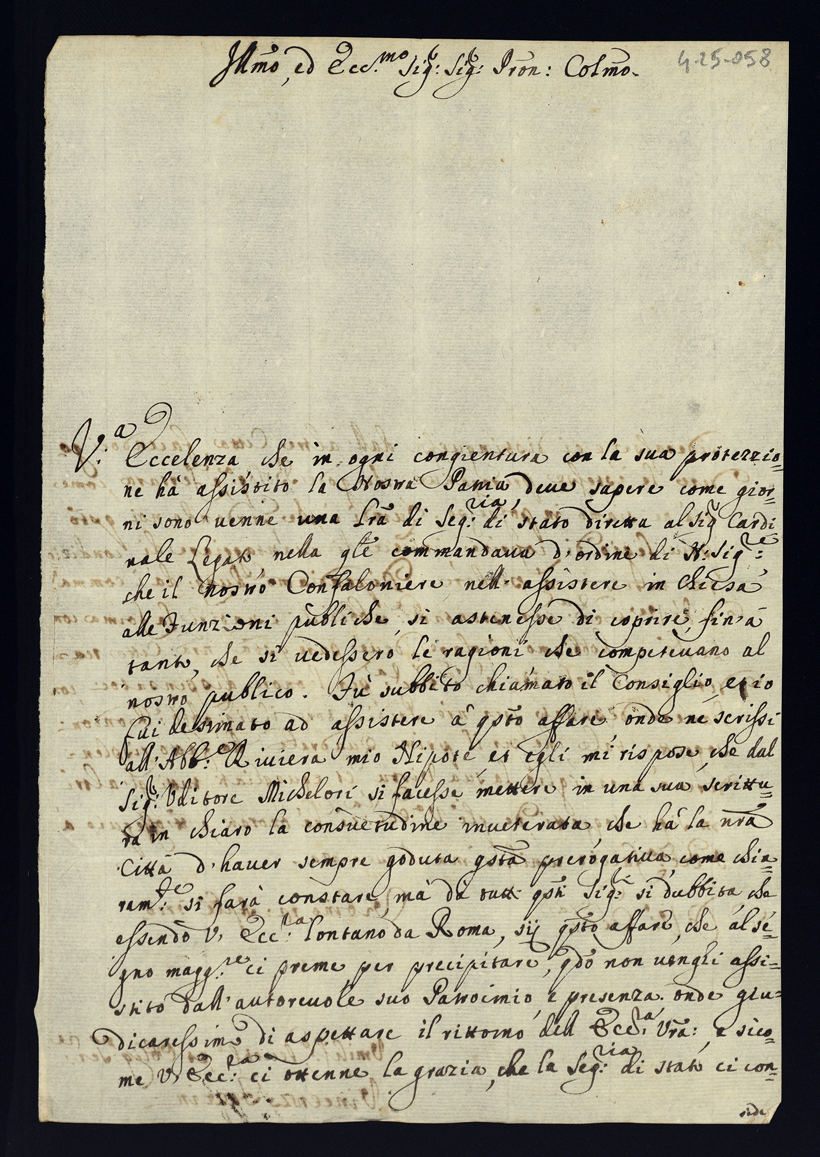 Illmo, ed Ecc.mo Sig: Sig: Pron: Colmo.
4-25-058
V.a Eccelenza che in ogni congientura con la sua protezzio=
ne hà assistito la Nostra Patria, deve sapere come gior=
ni sono venne una Lra di Seg:ria di stato diretta al Sig. Cardi
nale Legato, nella qle commandava d'ordine di N: Sig:re
che il nostro Confaloniere nell'assistere in chiesa
alle Funzioni publiche, si astenesse di coprire, fin'à
tanto, che si vedessero le ragioni che competevano al
nostro publico. Fù subbito chiamato il Consiglio, et io
fui destinato ad assistere à qsto affare onde ne scrissi
all'Abb:e Riviera mio Nipote et egli mi rispose, che dal
Sig. Uditore Michelori si facesse mettere in una sua scrittu=
ra in chiaro la consuetudine inveterata che hà la nra
Città d'haver sempre goduta qsta prerogativa, come chia
ram.te si farà constare, mà da tutti qsti Sig.i si dubbita, che
essendo V. Ecc.za lontano da Roma, sij qsto affare, che al se=
gno magg.re ci preme per precipitare, qdo non venghi assi=
stito dall'autorevole suo Patrocinio, e presenza. onde giu=
dicaressimo di aspettare il rittorno dell'Ecc:a Vra:, e sico=
me V. Ecc:za ci ottenne la grazia, che la Seg:ria di stato ci con=
sede